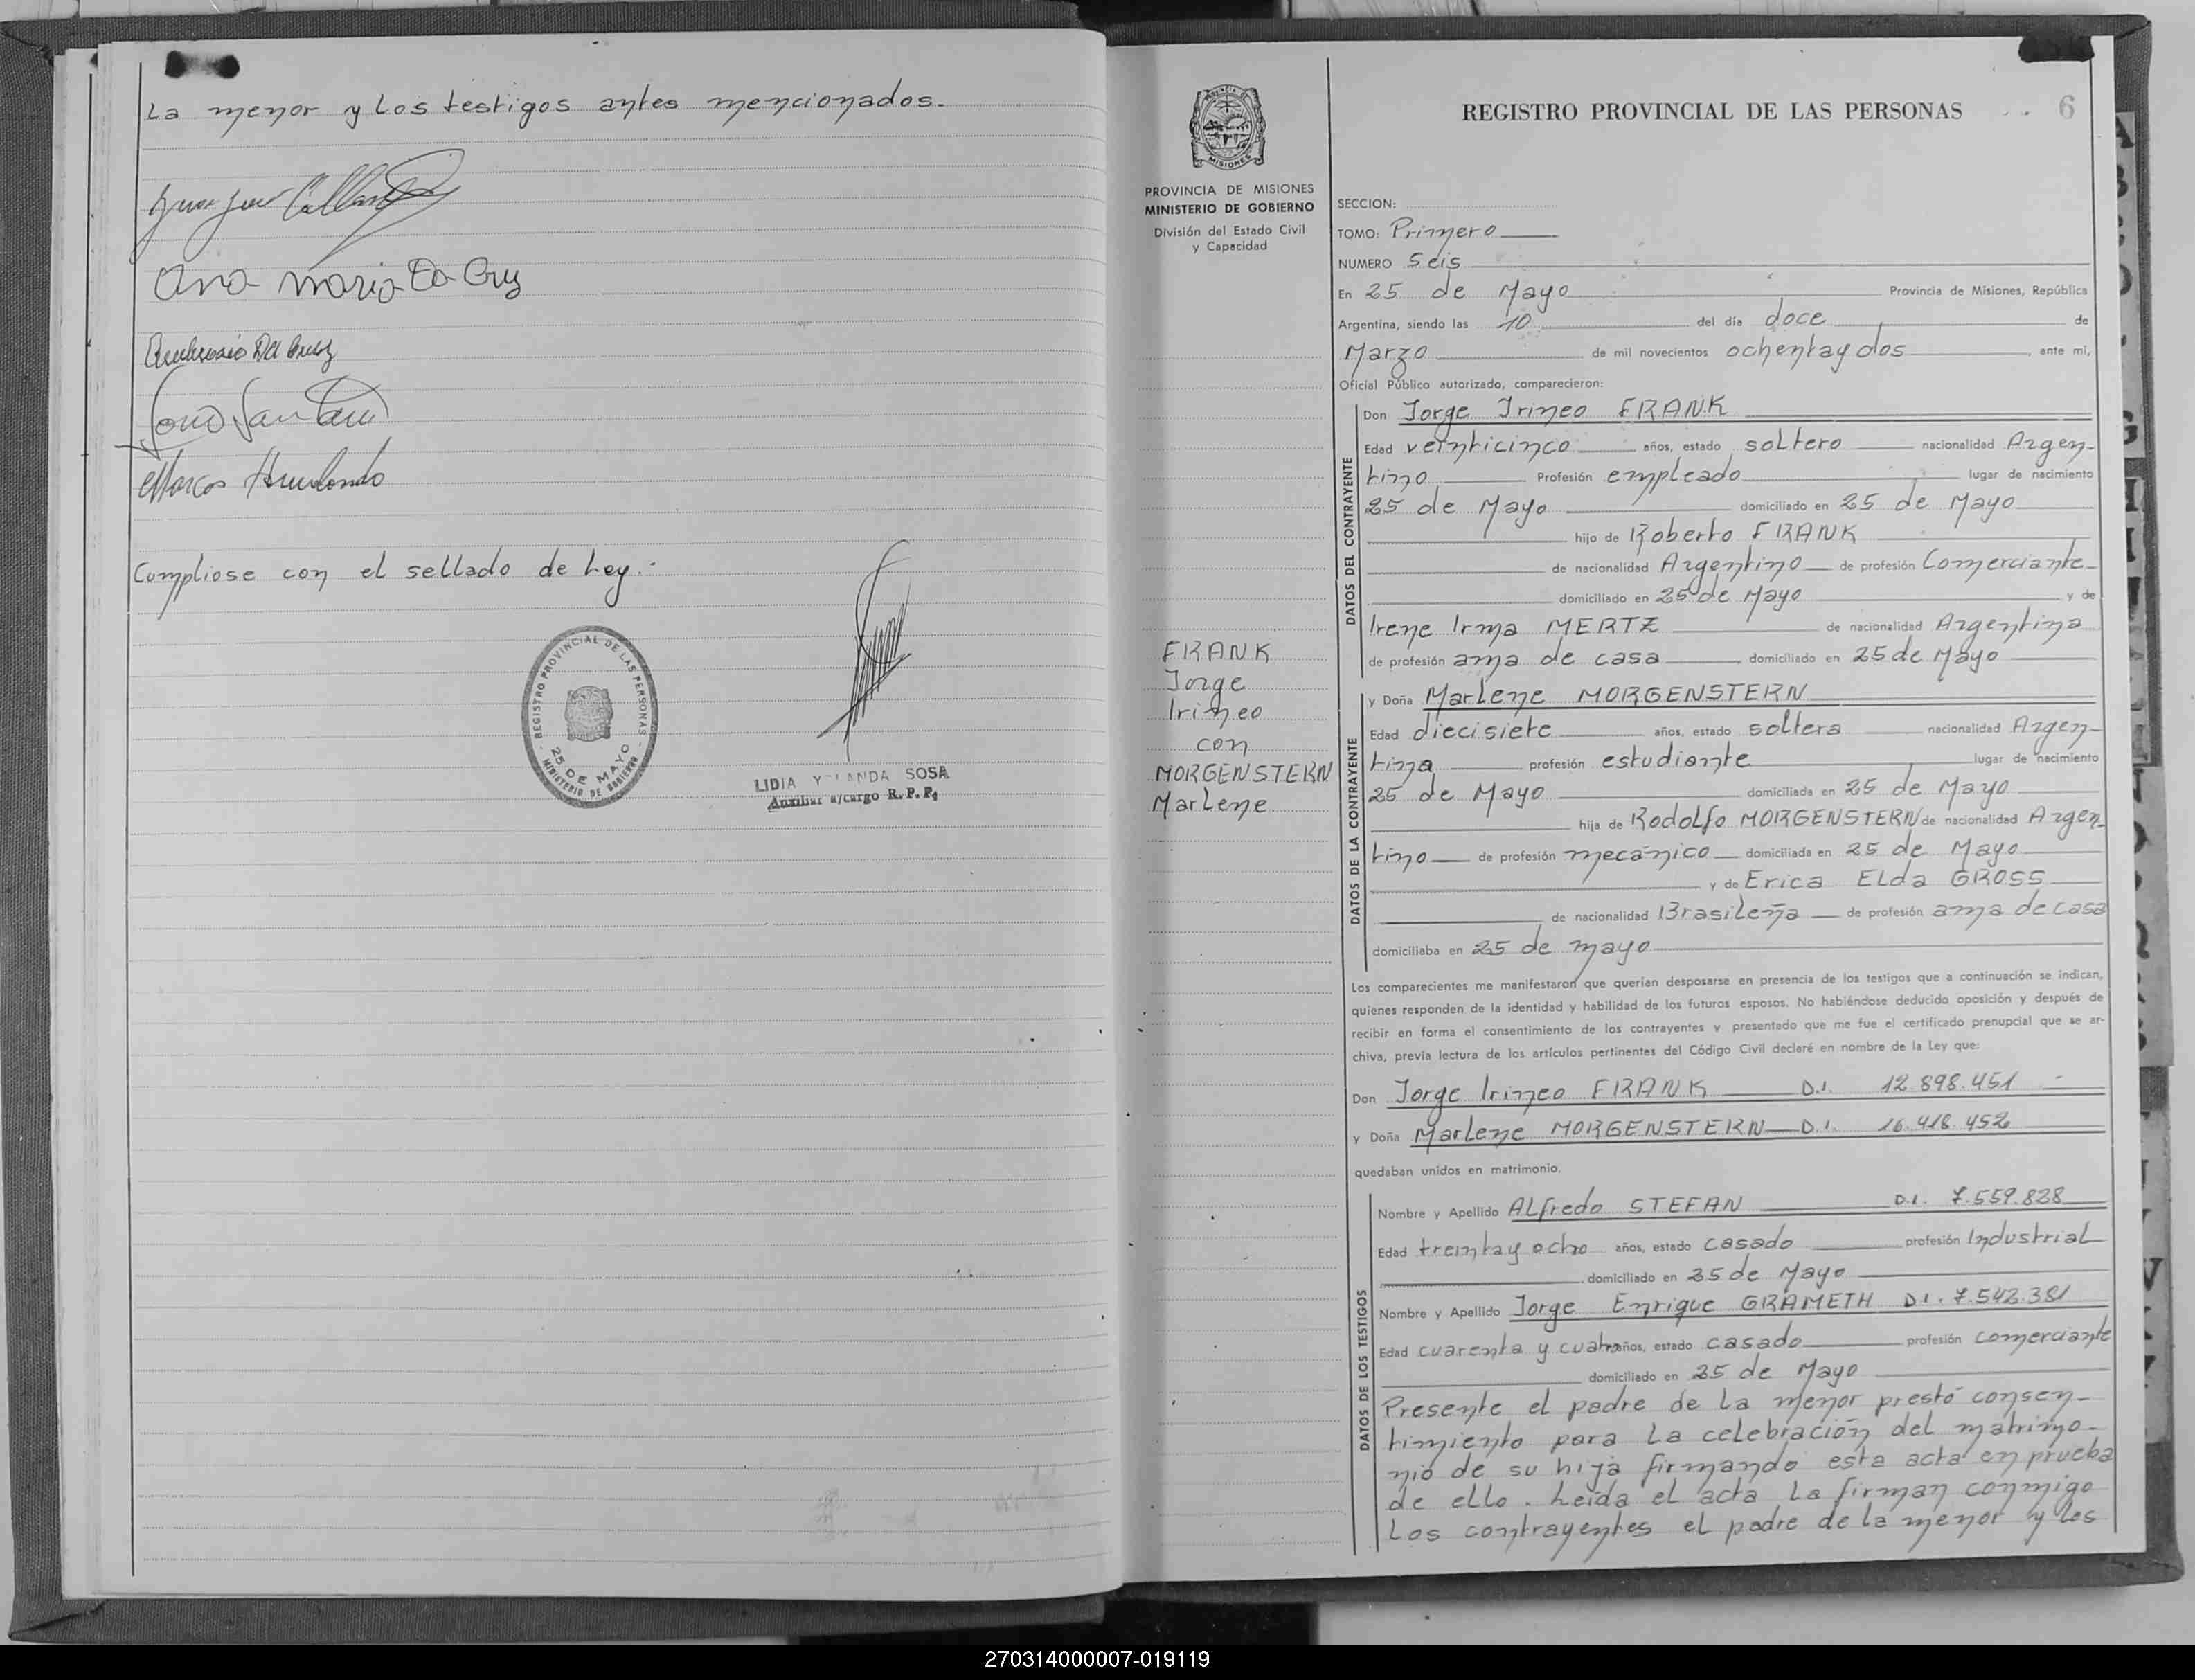 La menor y los testigos antes mencionados.-
Ana Maria Da Cruz
Marcos
Cumpliose con el sellado de Ley.-
REGISTRO PROVINCIAL DE LAS PERSONAS
25 DE MAYO
MINISTERIO DE GOBIERNO
LIDIA YOLANDA SOSA
Auxiliar a/cargo R. P. P.
MISIONES
PROVINCIA DE MISIONES
MINISTERIO DE GOBIERNO
División del Estado Civil
y Capacidad
FRANK
Jorge
Irineo
con
MORGENSTERN
Marlene
REGISTRO PROVINCIAL DE LAS PERSONAS 6
SECCION:
TOMO: Primero
NUMERO Seis
En 25 de Mayo Provincia de Misiones, República
Argentina, siendo las 10 del día doce de
Marzo de mil novecientos ochentaydos, ante mi,
Oficial Público autorizado, comparecieron:
DATOS DEL CONTRAYENTE
Don Jorge Irineo FRANK
Edad veinticinco años, estado soltero nacionalidad Argen-
tino Profesión empleado lugar de nacimiento
25 de Mayo domiciliado en 25 de Mayo
hijo de Roberto FRANK
de nacionalidad Argentino de profesión Comerciante
domiciliado en 25 de Mayo y de
Irene Irma MERTZ de nacionalidad Argentina
de profesión ama de casa domiciliado en 25 de Mayo
DATOS DE LA CONTRAYENTE
y Doña Marlene MORGENSTERN
Edad diecisiete años, estado soltera nacionalidad Argen-
tina profesión estudiante lugar de nacimiento
25 de Mayo domiciliada en 25 de Mayo
hija de Rodolfo MORGENSTERN de nacionalidad Argen-
tino de profesión mecánico domiciliada en 25 de Mayo
y de Erica Elda GROSS
de nacionalidad Brasileña de profesión ama de casa
domiciliaba en 25 de mayo
Los comparecientes me manifestaron que querían desposarse en presencia de los testigos que a continuación se indican,
quienes responden de la identidad y habilidad de los futuros esposos. No habiéndose deducido oposición y después de
recibir en forma el consentimiento de los contrayentes y presentado que me fue el certificado prenupcial que se ar-
chiva, previa lectura de los artículos pertinentes del Código Civil declaré en nombre de la Ley que:
Don Jorge Irineo FRANK D.I. 12.898.451
y Doña Marlene MORGENSTERN D.I. 16.418.452
quedaban unidos en matrimonio.
DATOS DE LOS TESTIGOS
Nombre y Apellido Alfredo STEFAN D.I. 7.559.828
Edad treintay ocho años, estado casado profesión Industrial
domiciliado en 25 de Mayo
Nombre y Apellido Jorge Enrique GRAMETH D.I. 7.542.381
Edad cuarenta y cuatro años, estado casado profesión comerciante
domiciliado en 25 de Mayo
Presente el padre de la menor prestó consen-
timiento para la celebración del matrimo-
nio de su hija firmando esta acta en prueba
de ello. Leída el acta la firman conmigo
Los contrayentes el padre de la menor y los
270314000007-019119